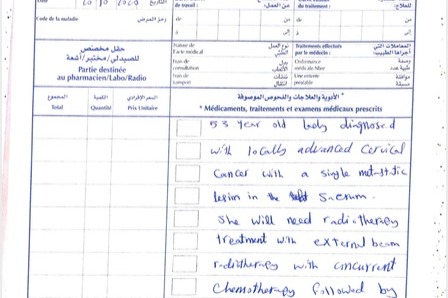 de travail :
من العمل:
du traitement :
للعلاج:
Date
20 10 2020
التاريخ
de
من
de
من
Code de la maladie
رمز المرض
à
إلى
à
إلى
حقل مخصص
للصيدلي/مختبر/أشعة
Partie destinée
au pharmacien/Labo/Radio
Nature de
l'acte médical
نوع العمل
الطبي
Traitements effectués
par le médecin:
المعاملات التي
أجراها الطبيب:
Frais de
consultation
بدل
الأتعاب
Ordonnance
médicale Nbre
وصفة
طبية عدد
Frais de
transport
نفقات
انتقال
Une entente
préalable
موافقة
مسبقة
المجموع
Total
الكمية
Quantité
السعر الإفرادي
Prix Unitaire
* الأدوية والعلاجات والفحوص الموصوفة
* Médicaments, traitements et examens médicaux prescrits
53 year old lady diagnosed
with locally advanced cervical
Cancer with a single metastatic
lesion in the Sacrum.
She will need radiotherapy
treatment with external beam
radiotherapy with concurrent
Chemotherapy followed by